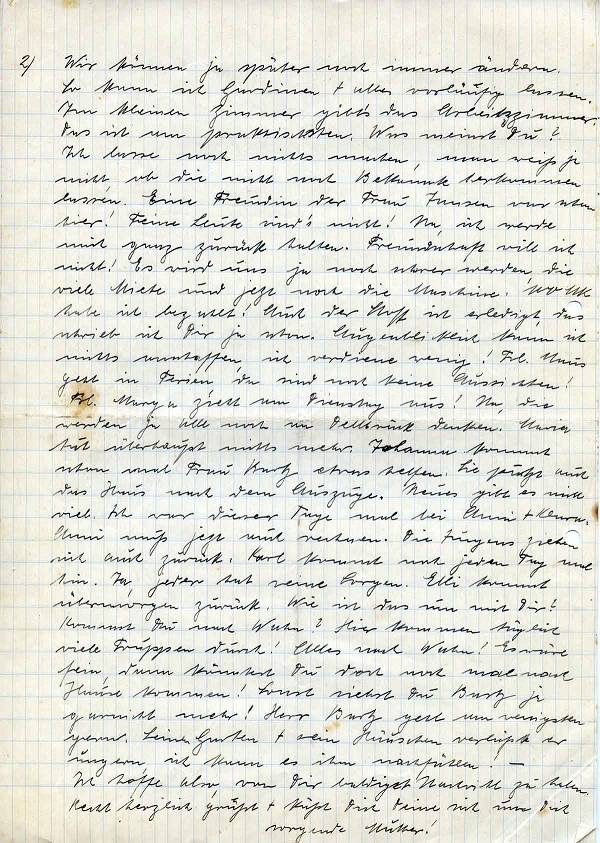 2) Wir können ja später noch immer ändern.
So kann ich Gardinen + alles vorläufig lassen.
Im kleinen Zimmer gibt's das Arbeitszimmer.
Das ist am praktischsten. Was meinst Du?
Ich lasse noch nichts machen, man weiß ja
nicht ob die nicht noch Bekannte herkommen
lassen. Eine Freundin der Frau Jansen war schon
hier! Feine Leute sind's nicht! Na, ich werde
mich ganz zurück halten. Freundschaft will ich
nicht! Es wird uns ja noch schwer werden, die
viele Miete und jetzt noch die Maschine. 100 Mk
habe ich bezahlt! Auch der Stoff ist erledigt, das
schrieb ich Dir ja schon. Augenblicklich kann ich
nichts anschaffen, ich verdiene wenig! Frl. Maus
geht in Ferien da sind noch keine Aussichten!
Frl. Marga zieht am Dienstag aus! Na, die
werden ja alle noch an Dellbrück denken. Maria
tut überhaupt nichts mehr. Johanna kommt
schon mal Frau Bartz etwas helfen. Sie putzt auch
das Haus nach dem Auszuge. Neues gibt es nicht
viel. Ich war dieser Tage mal bei Anni +
Anni muß jetzt auch rechnen. Die Jungens ziehen
sich auch zurück. Karl kommt noch jeden Tag mal
hin. Ja, jeder hat seine Sorgen. Elli kommt
übermorgen zurück. Wie ist das nun mit Dir?
Kommst Du nach Wahn? Hier kommen täglich
viele Truppen durch! Alles nach Wahn! Es wäre
fein, dann könntest Du doch noch mal nach
Hause kommen! Sonst siehst Du Bartz ja
garnicht mehr! Herr Bartz geht am wenigsten
gern. Seine Garten + sein Häuschen verläßt er
ungern, ich kann es ihm nachfühlen! —
Ich hoffe also, von Dir baldigst Nachricht zu haben.
Recht herzlich grüßt + küßt Dich Deine sich um Dich
sorgende Mutter!